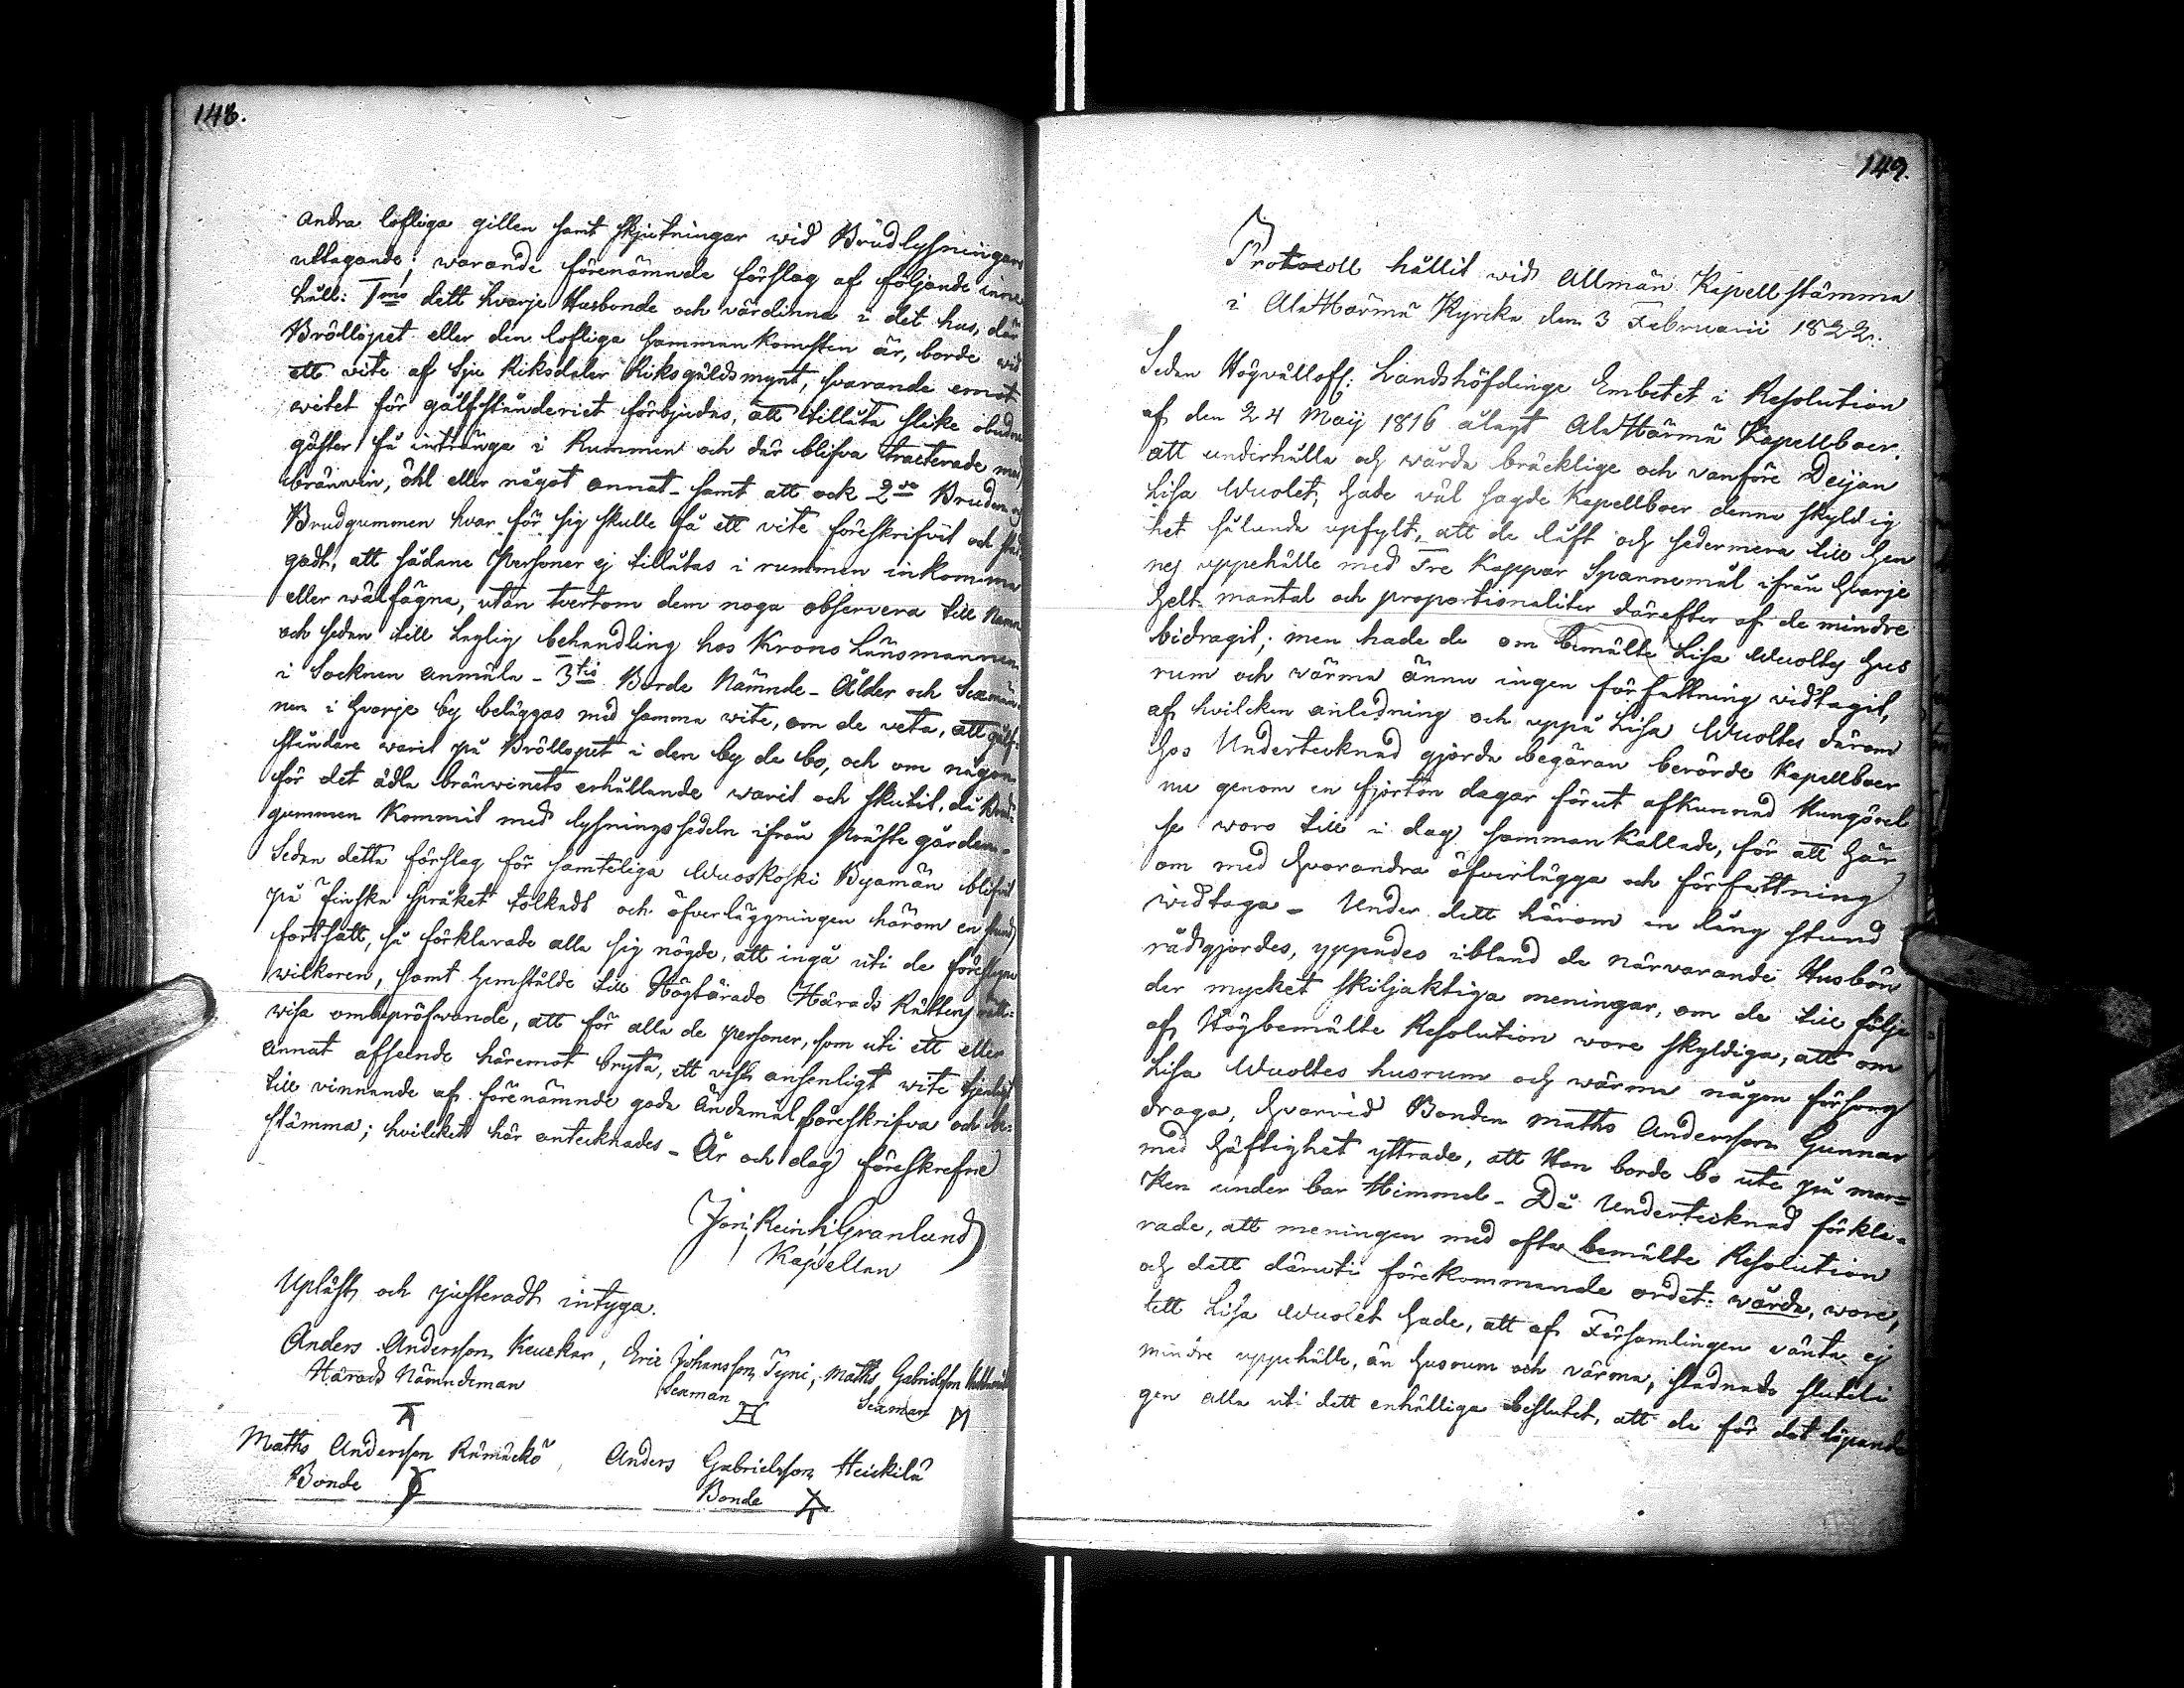 148.
andra lofliga gillen samt skjutningar wid Brudlysningars
uttagande; warande förenämnde förslag af följande inne
håll: 1mo dett hvarje Husbonde och värdinna i det hus, där
Bröllopet eller den lofliga sammankomsten är, borde wid
ett vite af Sju Riksdaler Riksgäldsmynt, svarande emot
witet för gålfständeriet förbjudas, att tillåta slike obudne
gäster få intränga i Rummen och där blifva tracterade med
bränwin, öhl eller något annat - samt att ock 2do Bruden och
Brudgummen hvar för sig skulle få ett vite föreskrifvit och stad-
gadt, att sådane Personer ej tillåtas i rummen inkomma
eller wälfägna, utan tvertom dem noga observera till Namn
och sedan till Laglig behandling hos Krono Länsmannen
i Socknen anmäla - 3tio Borde Nämnde-Ålder och Sexmän-
nen i hvarje by beläggas med samma wite, om de veta, att gålf-
ståndare warit på Bröllopet i den by de bo, och om någon
för det ädla bränwinets erhållande warit och skutit, då Brud-
gummen kommit med lysningssedeln ifrån Prästegården -
Sedan detta förslag för samteliga Wuoskoski Byamän blifvit
på Finska språket tolkadt och öfverläggningen härom en stund
fortsatt, så förklarade alla sig nögde, att ingå uti de föreslagne
wilkoren, samt hemstälde till Högtärade Härads Rättens rätt-
visa ombepröfwande, att för alla de personer, som uti ett eller
annat afseende häremot bryta, ett visst ansenligt wite tjenligt
till vinnande af förenämnde goda Ändamål föreskrifva och be-
stämma; hvilcket här antecknades - År och dag föreskrefne
Joh: Reinh: Granlund
Kapellan
Upläst och justeradt intyga.
Anders Andersson Keuckar, Eric Johansson Tyni, Maths Gabrielsson
Härads Nämndeman Sexman Sexman
Maths Andersson Rämäckö, Anders Gabrielsson Heickilä
Bonde Bonde
149.
Protocoll hållit wid Allmän Kapellstämma
i Ala Härmä Kyrcka den 3 Februarii 1822.
Sedan Högvällofl: Landshöfdinge Embetet i Resolution
af den 24 Maij 1816 ålagt Ala Härmä Kapellboer.
att underhålla och wårda bräcklige och vanföre Deijan
Lisa Wuolet, hade väl sagde Kapellboer denna skyldig
het sålunda upfylt, att de låft och sedermera till hen
nes uppehälle med Tre Kappar Spannemål ifrån hvarje
helt mantal och proportionaliter därefter af de mindre
bidragit; men hade de om bemälte Lisa Wuoltes hus
rum och wärma ännu ingen författning vidtagit,
af hvilcken anledning och uppå Lisa Wuoltes därom
hos Undertecknad gjorda begäran berörde Kapellboer
nu genom en fjorton dagar förut afkunnad Kungörel
se woro till i dag sammankallade, för att här
om med hvarandra öfverlägga och författning
widtaga - Under dett härom en lång stund
rådgjordes, yppades ibland de närvarande Husbön
der mycket skiljaktiga meningar, om de till följe
af Högbemälte Resolution wore skyldiga, att om
Lisa Wuoltes husrum och wärma någon försorg
draga, hvarvid Bonden Maths Andersson Gunnar
med häftighet yttrade, att Hon borde bo ute på mar-
ken under bar Himmel - Då Undertecknad förkla-
rade, att meningen med ofta bemälte Resolution
och dett däruti förekommande ordet: wårda, wore,
att Lisa Wuolet hade, att af Församlingen vänta ej
mindre uppehälle, än husrum och värma, stadnade sluteli
gen alla uti dett enhälliga beslutet, att de för det löpande